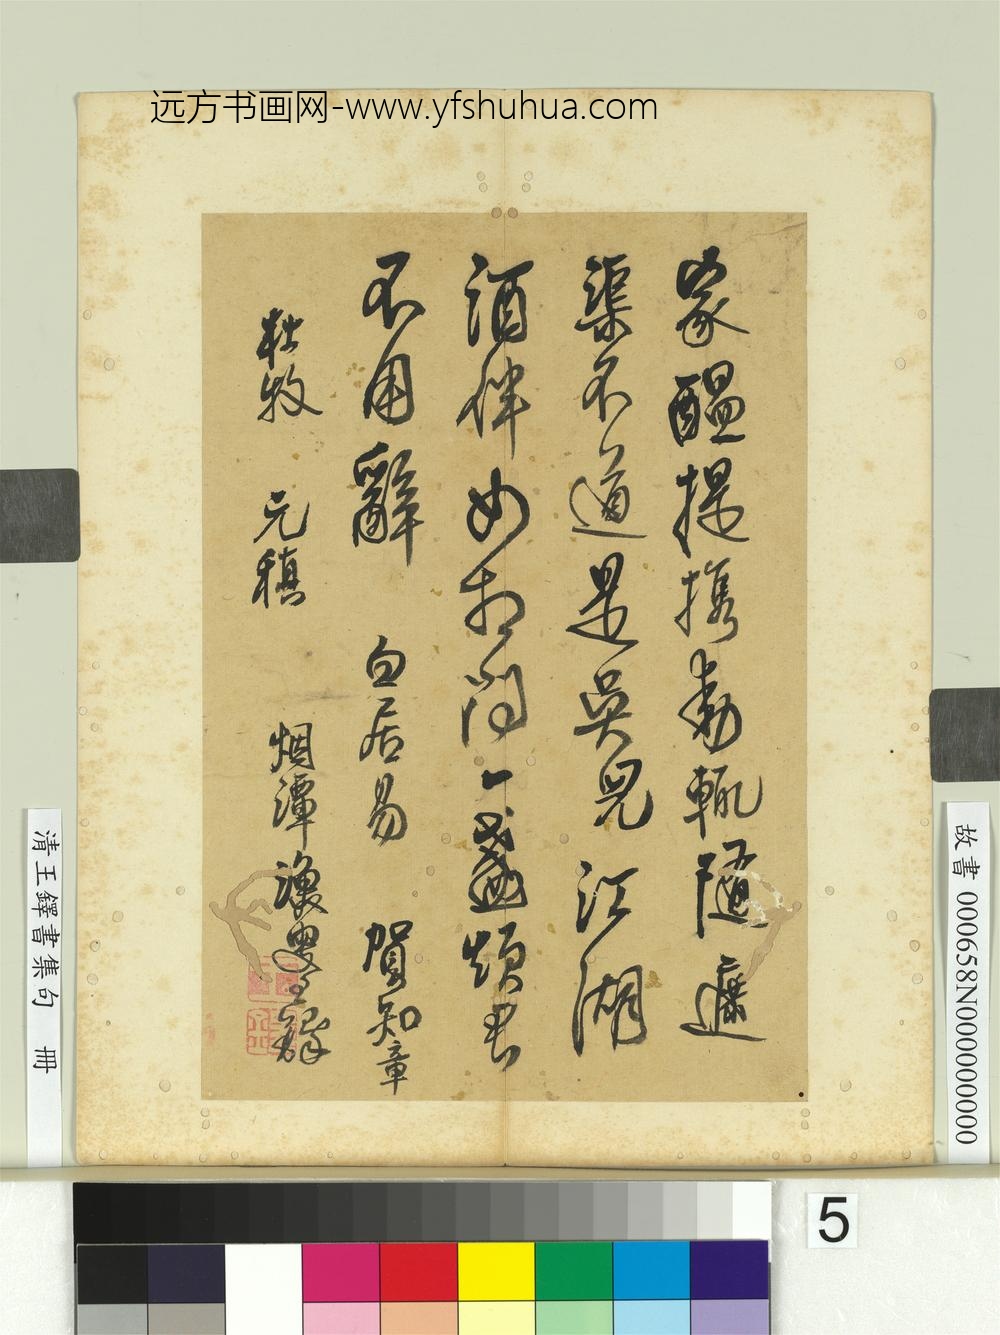 远方书画网-www.yfshuhua.com
家醖提携勸輒隨
渠不道是吳兒江湖
酒伴如相問一盞煩君
不用辭 白居易 賀知章
杜牧 元稹 烟潭漁叟王鐸
故書 000658N000000000
清王鐸書集句 冊
5